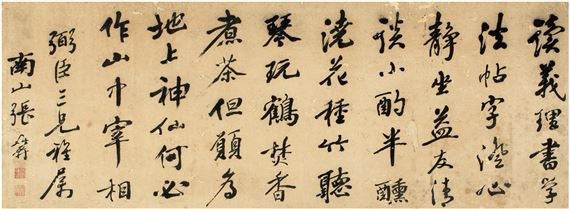 讀義理書学
法帖字澄心
靜坐益友清
談小酌半醺
澆花種竹聽
琴玩鶴焚香
煮茶但願為
地上神仙何必
作山中宰相
弼臣三兄雅屬
南山張